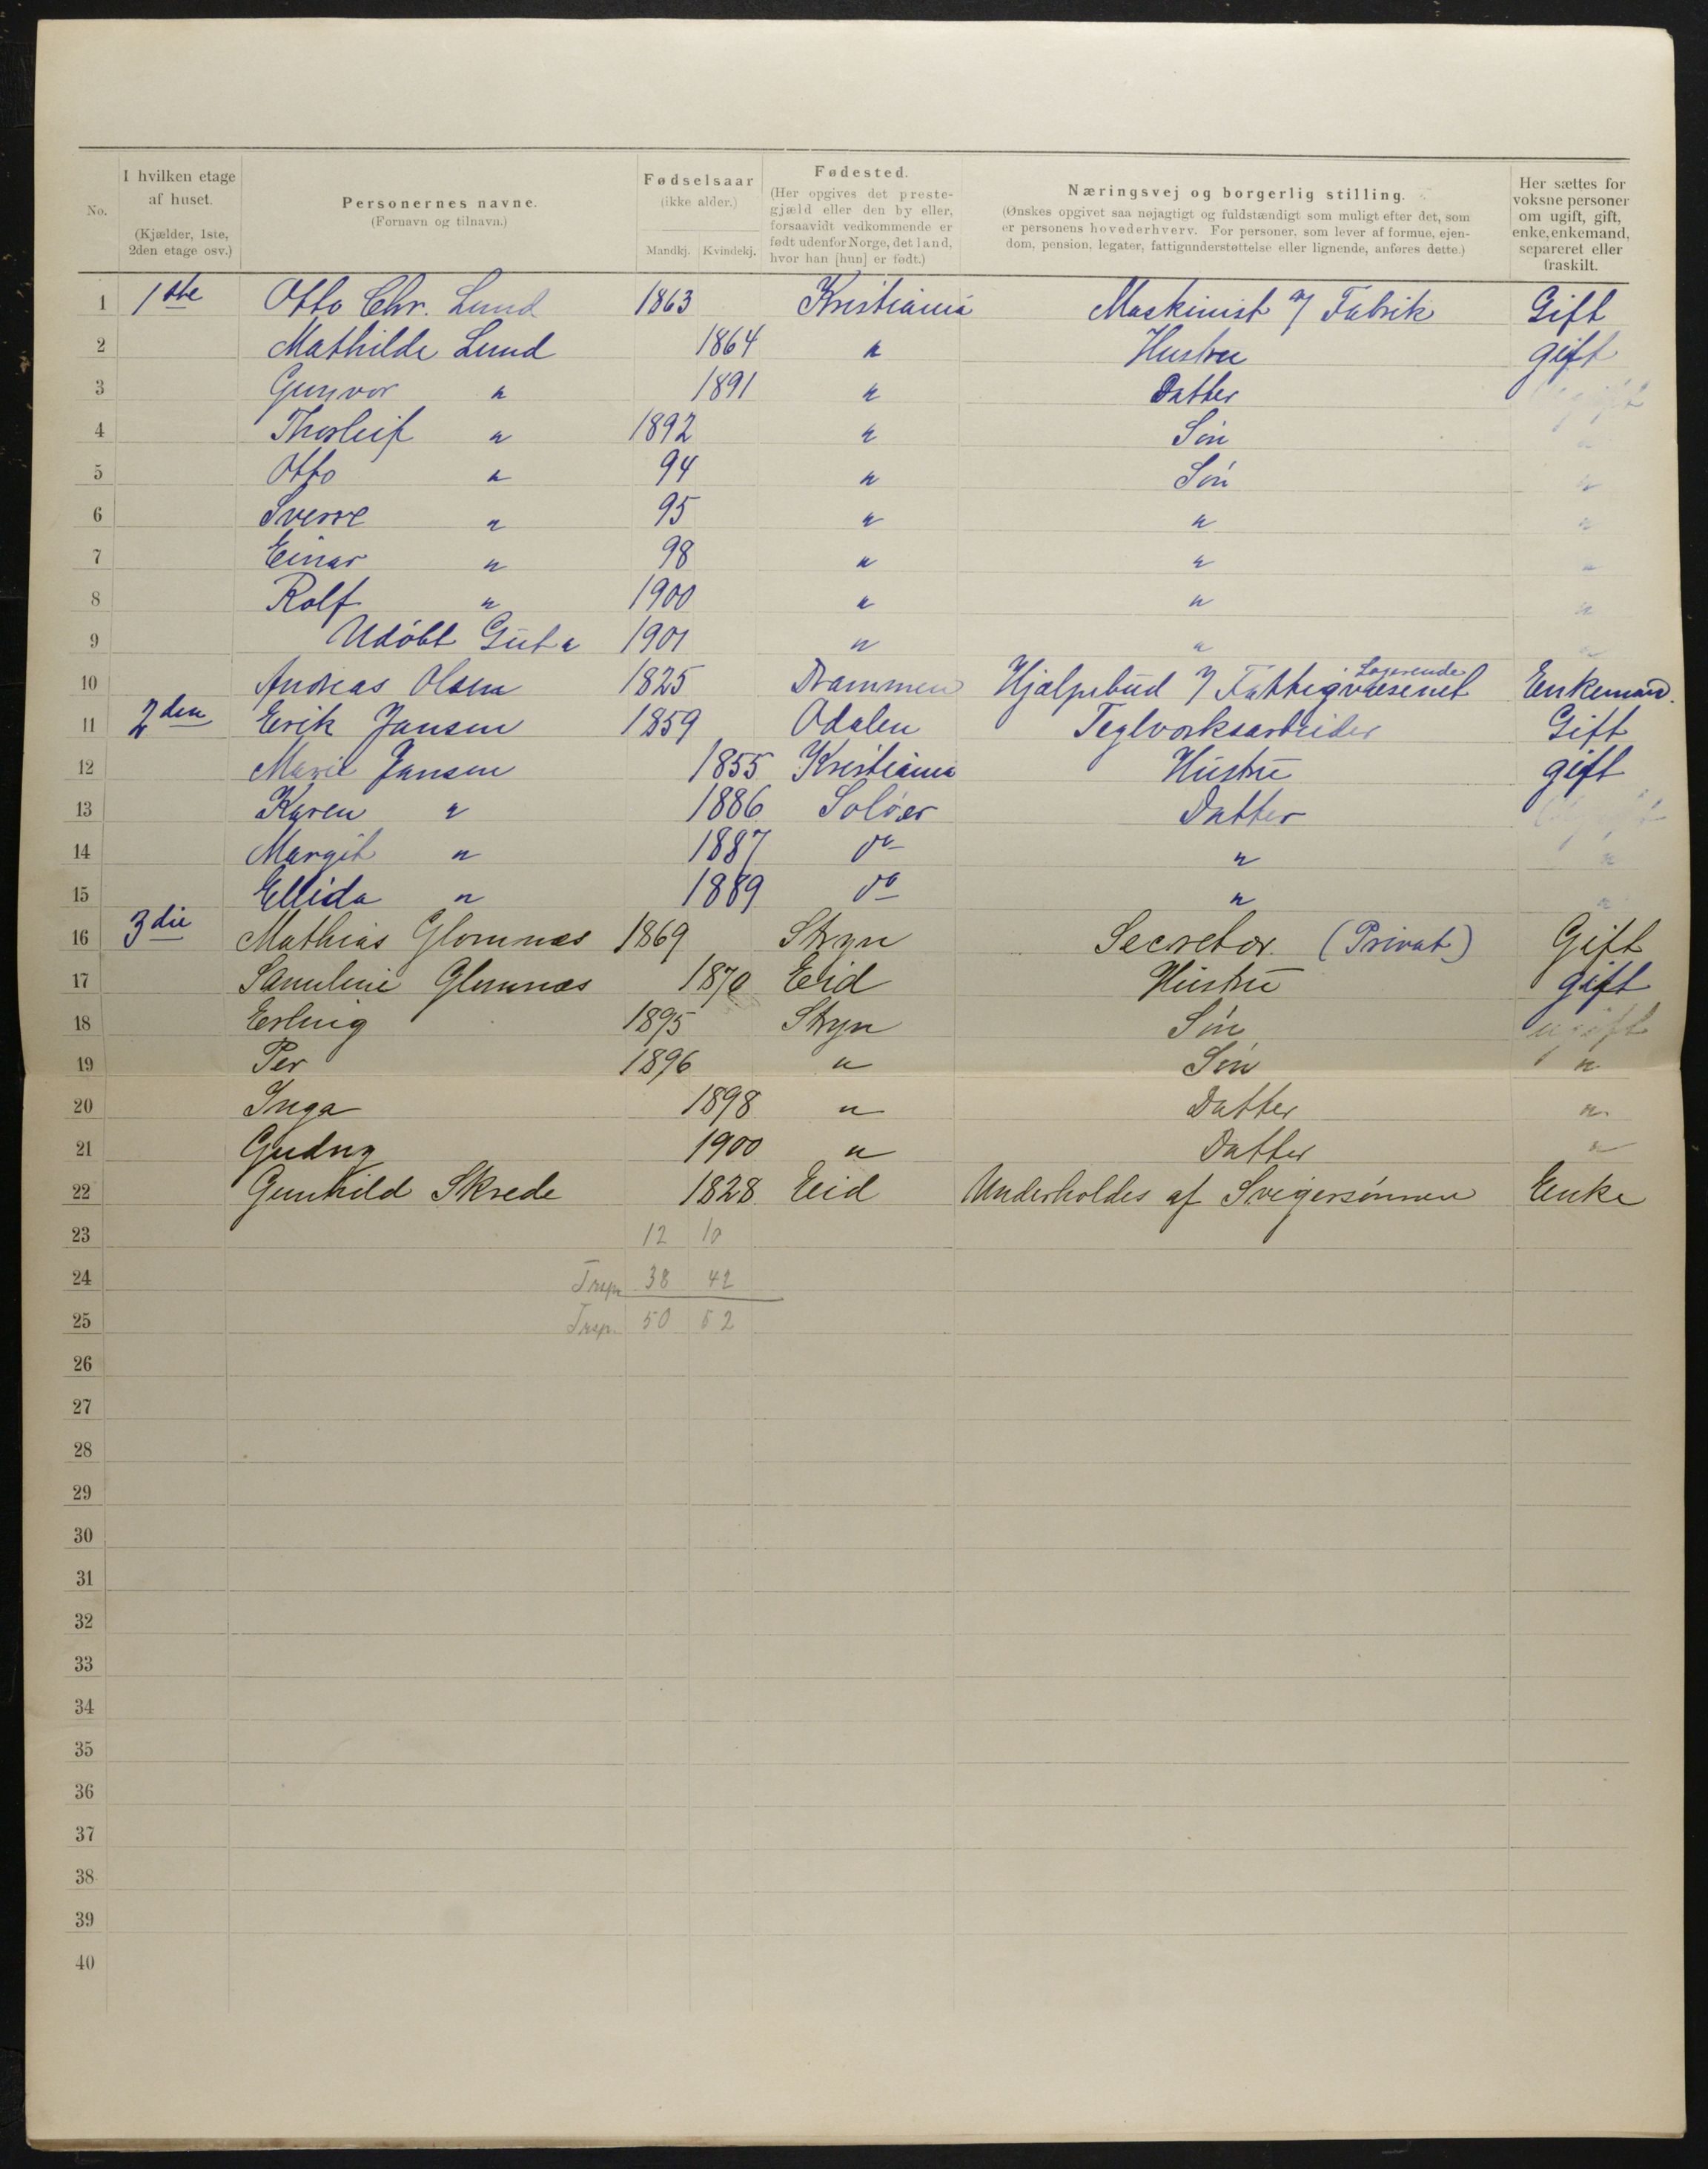 No.
I hvilken etage af huset. (Kjælder, 1ste, 2den etage osv.)
Personernes navne. (Fornavn og tilnavn.)
Fødselsaar (ikke alder.) Mandkj. Kvindekj.
Fødested. (Her opgives det prestegjæld eller den by eller, forsaavidt vedkommende er født udenfor Norge, det land, hvor han [hun] er født.)
Næringsvej og borgerlig stilling. (Ønskes opgivet saa nøjagtigt og fuldstændigt som muligt efter det, som er personens hovederhverv. For personer, som lever af formue, ejendom, pension, legater, fattigunderstøttelse eller lignende, anføres dette.)
Her sættes for voksne personer om ugift, gift, enke, enkemand, separeret eller fraskilt.
1 1ste Otto Chr. Lund 1863 Kristiania Maskinist v/ Fabrik Gift
2 Mathilde Lund 1864 " Hustru gift
3 Gunvor " 1891 " Datter Ugift
4 Thorleif " 1892 " Søn "
5 Otto " 94 " Søn "
6 Sverre " 95 " " "
7 Einar " 98 " " "
8 Rolf " 1900 " " "
9 Udøbt Gut " 1901 " " "
10 Andreas Olsen 1825 Drammen Hjælpebud v/ Fattigvæsenet Logerende Enkemand.
11 2den Erik Jansen 1859 Odalen Teglverksarbeider Gift
12 Marie Jansen 1855 Kristiania Hustru gift
13 Karen " 1886 Solør Datter Ugift
14 Margit " 1887 do " "
15 Ellida " 1889 do " "
16 3die Mathias Glomnæs 1869 Stryn Secretær. (Privat) Gift
17 Samuline Glomnæs 1870 Eid Hustru gift
18 Erling 1895 Stryn Søn ugift
19 Per 1896 " Søn "
20 Inga 1898 " Datter "
21 Gudny 1900 " Datter "
22 Gunhild Skrede 1828 Eid Underholdes af Svigersønnen Enke
23 12 10
24 Trsp. 38 42
25 Trsp. 50 52
26
27
28
29
30
31
32
33
34
35
36
37
38
39
40